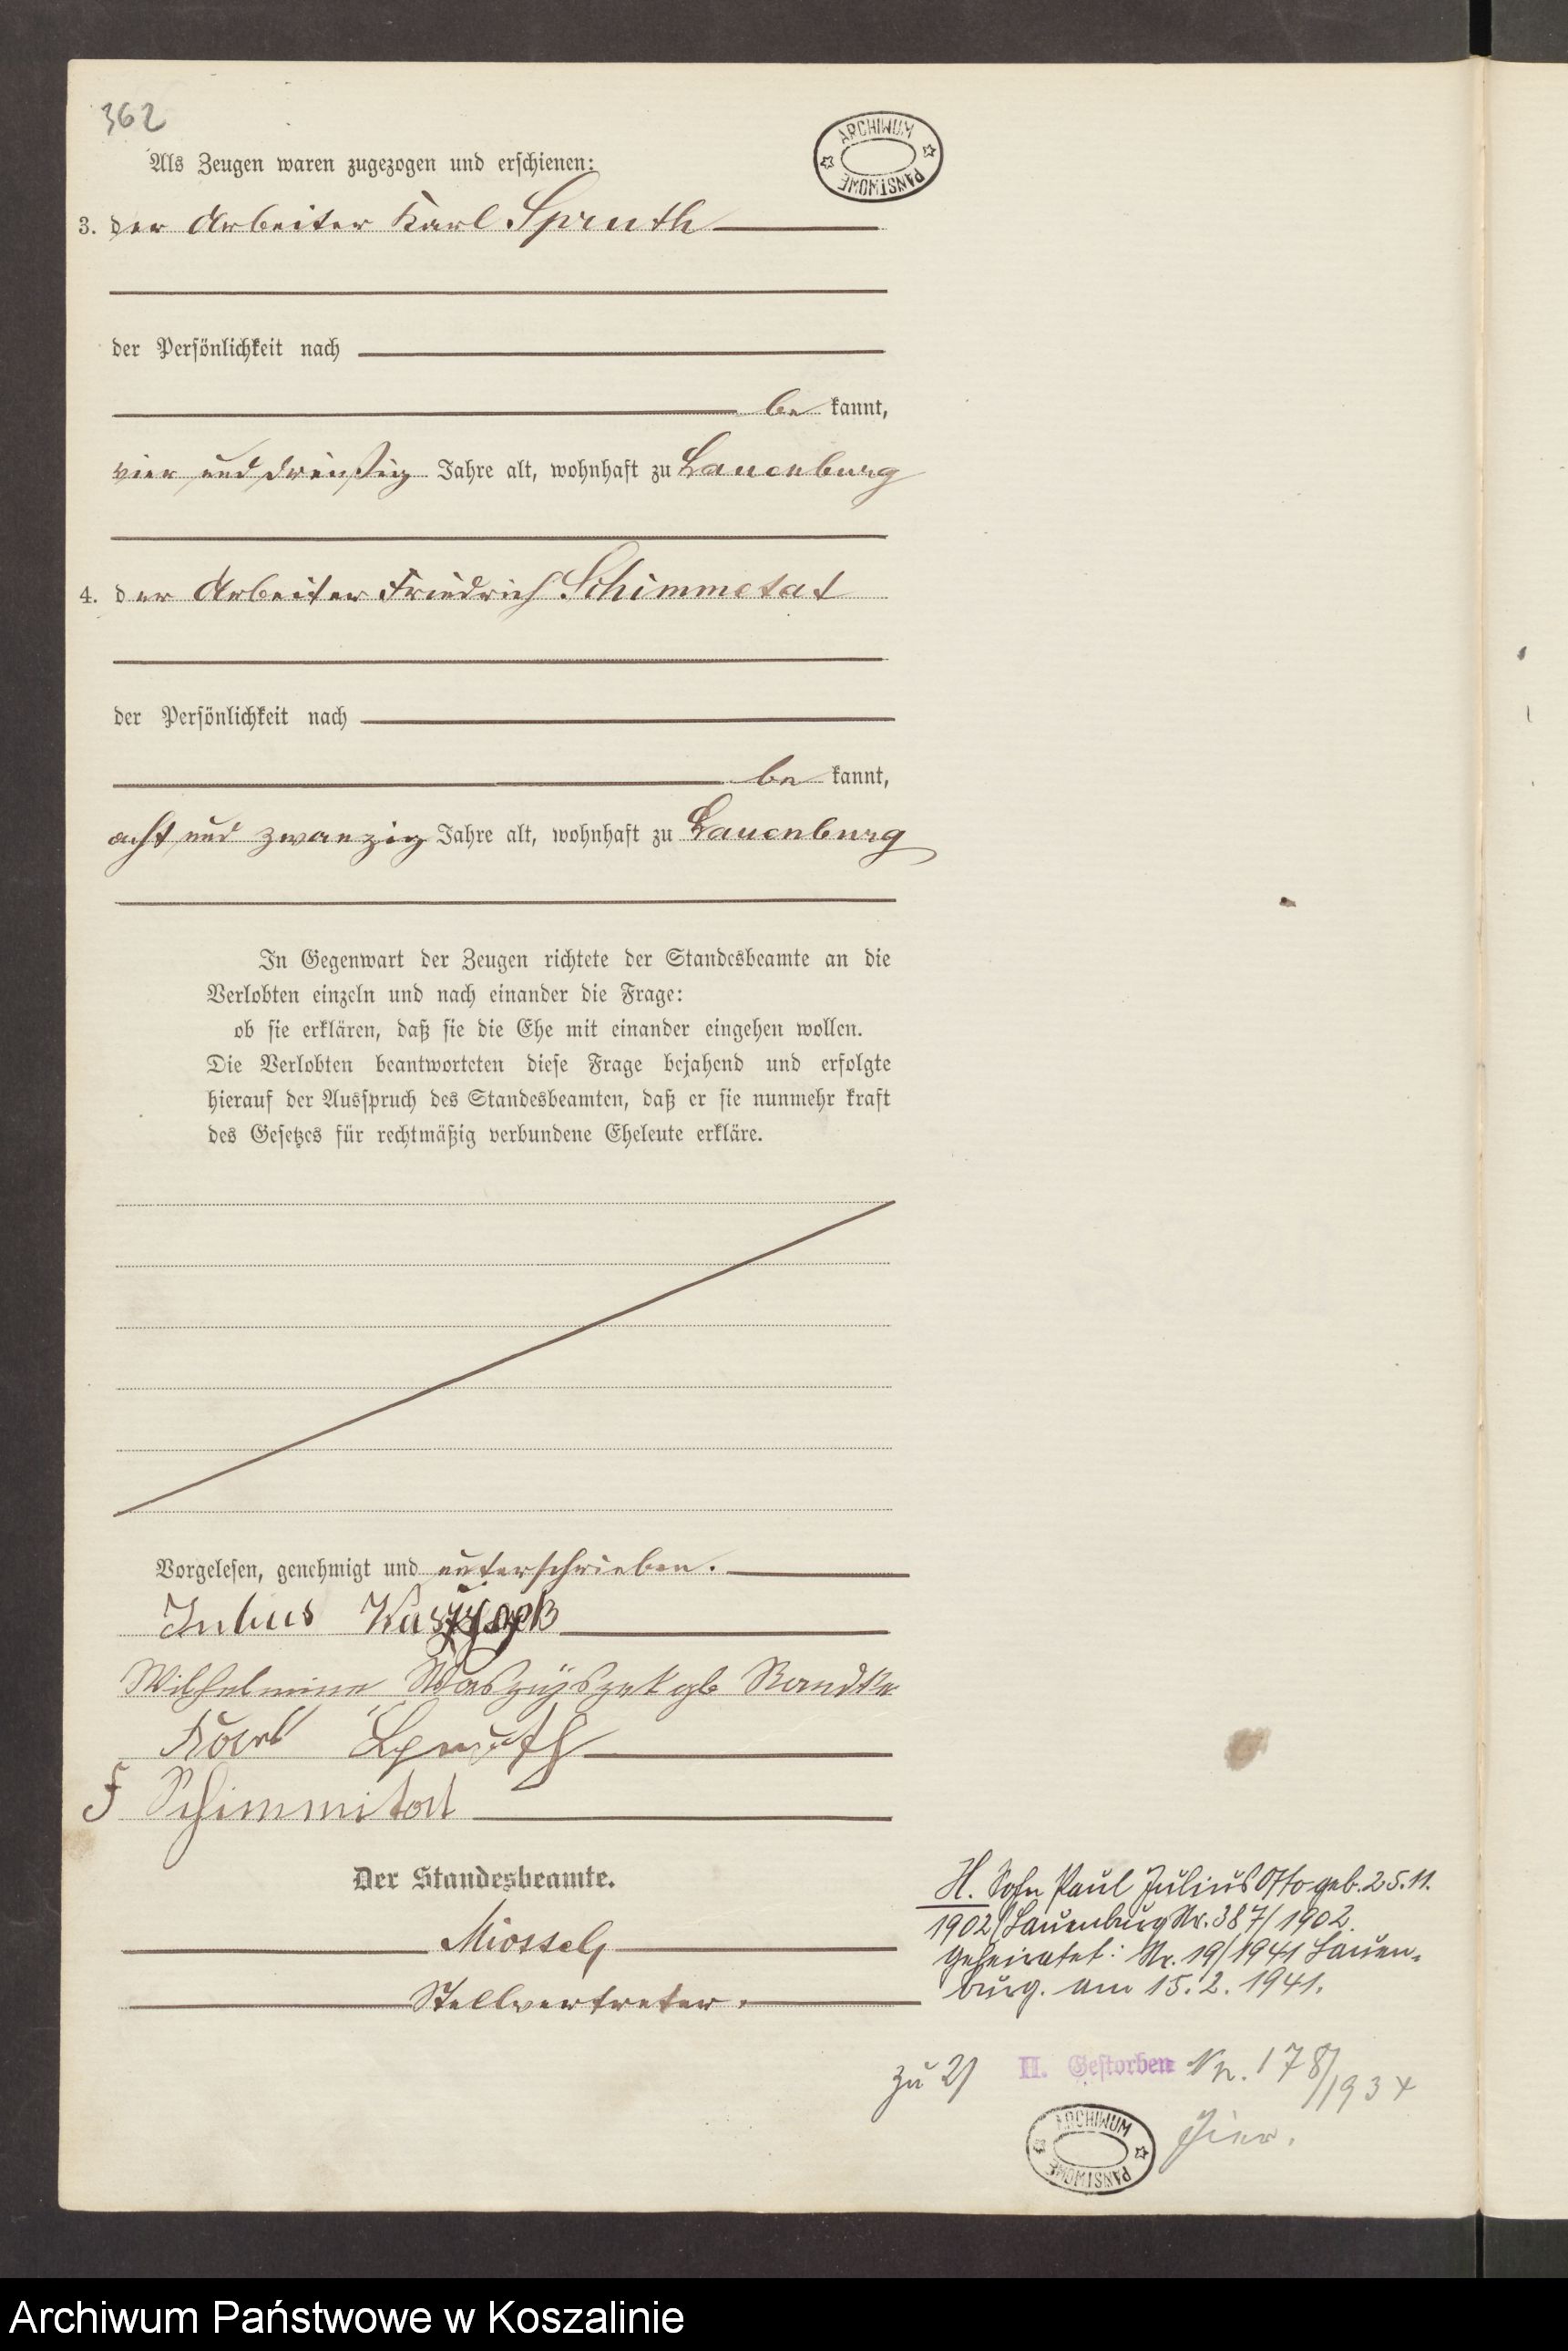 362
ARCHIWUM PAŃSTWOWE
Als Zeugen waren zugezogen und erschienen:
3. der Arbeiter Karl Spruth
der Persönlichkeit nach
be kannt,
vier und dreißig Jahre alt, wohnhaft zu Lauenburg
4. der Arbeiter Friedrich Schimmetat
der Persönlichkeit nach
be kannt,
acht und zwanzig Jahre alt, wohnhaft zu Lauenburg
In Gegenwart der Zeugen richtete der Standesbeamte an die
Verlobten einzeln und nach einander die Frage:
ob sie erklären, daß sie die Ehe mit einander eingehen wollen.
Die Verlobten beantworteten diese Frage bejahend und erfolgte
hierauf der Ausspruch des Standesbeamten, daß er sie nunmehr kraft
des Gesetzes für rechtmäßig verbundene Eheleute erkläre.
Vorgelesen, genehmigt und unterschrieben.
Julius
Wilhelmine Waszyszek gb Randke
Karl Spruth
F Schimmitat
Der Standesbeamte.
Stellvertreter.
H. Sohn Paul Julius Otto geb. 25.11.
1902 Lauenburg Nr. 387/1902.
Geheiratet: Nr. 19/1941 Lauen-
burg. am 15.2.1941.
zu 2) II. Gestorben Nr. 178/1934
hier.
ARCHIWUM PAŃSTWOWE
Archiwum Państwowe w Koszalinie